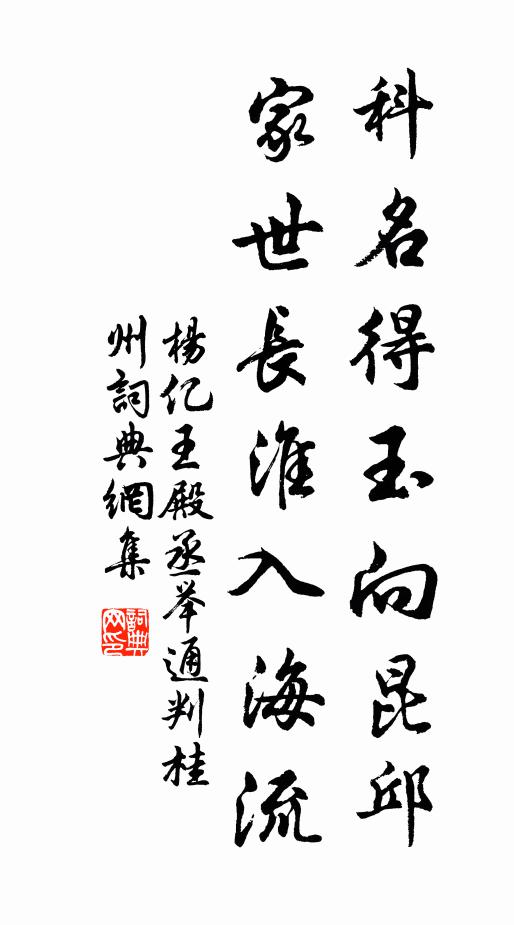 科名得玉向昆邱
家世長淮入海流
楊亿王殿丞举通判桂
州詞典網集
詞典网印